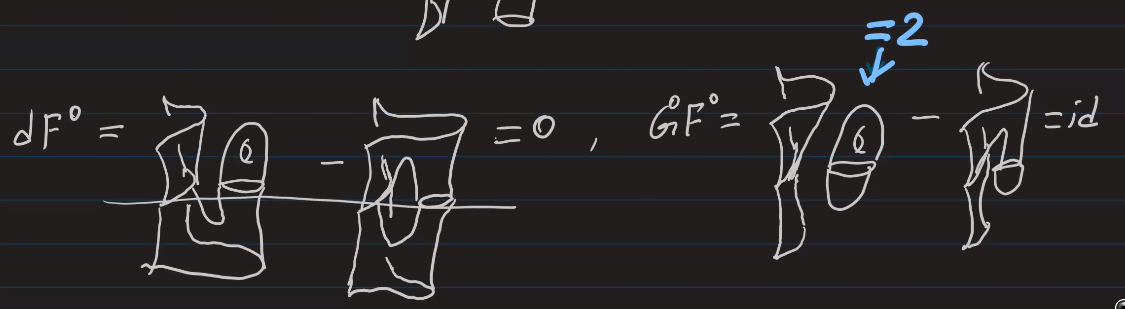 =2
dF⁰ = − =0, G⁰F⁰= − =id